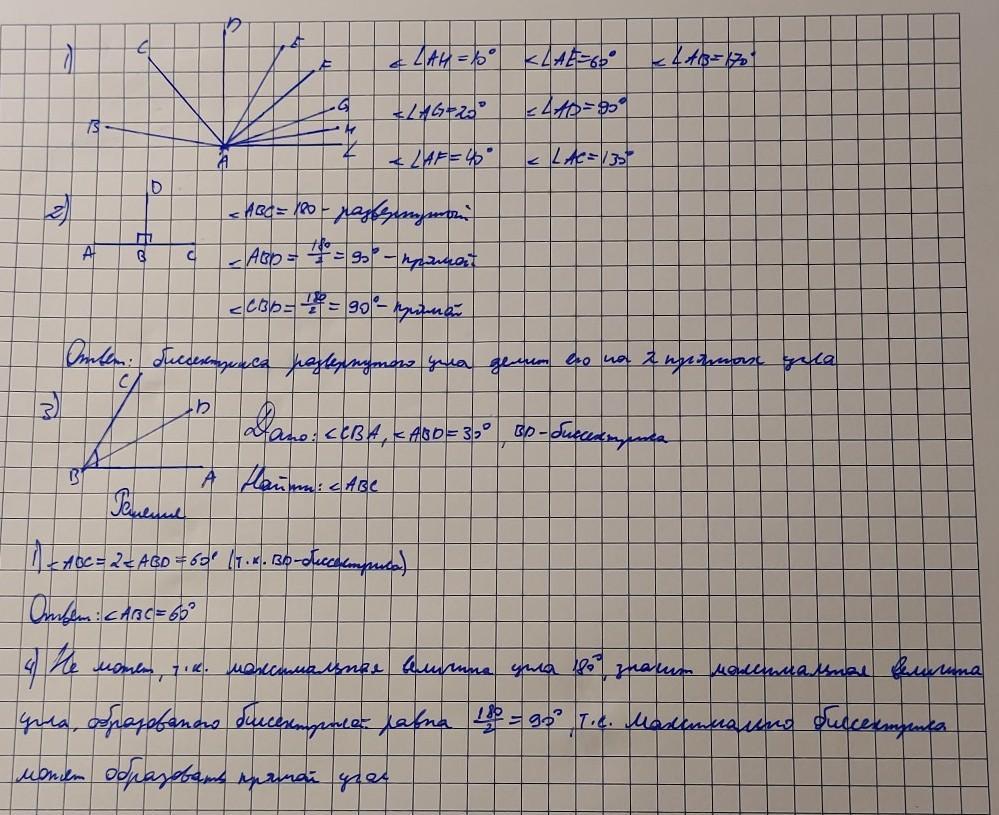 1)
C D E F B G H L A
∠LAH=10° ∠LAE=60° ∠LAB=170°
∠LAG=20° ∠LAD=90°
∠LAF=40° ∠LAC=130°
2)
D A B C
∠ABC=180 - развернутый
∠ABD=180/2=90° - прямой
∠CBD=180/2=90° - прямой
Ответ: биссектриса развернутого угла делит его на 2 прямых угла
3)
C D B A
Дано: ∠CBA, ∠ABD=30°, BD-биссектриса
Найти: ∠ABC
Решение
1) ∠ABC=2∠ABD=60° (т.к. BD-биссектриса)
Ответ: ∠ABC=60°
4) Не может, т.к. максимальная величина угла 180°, значит максимальная величина
угла, образованого биссектрисой равна 180/2=90°, т.е. максимально биссектриса
может образовать прямой угол